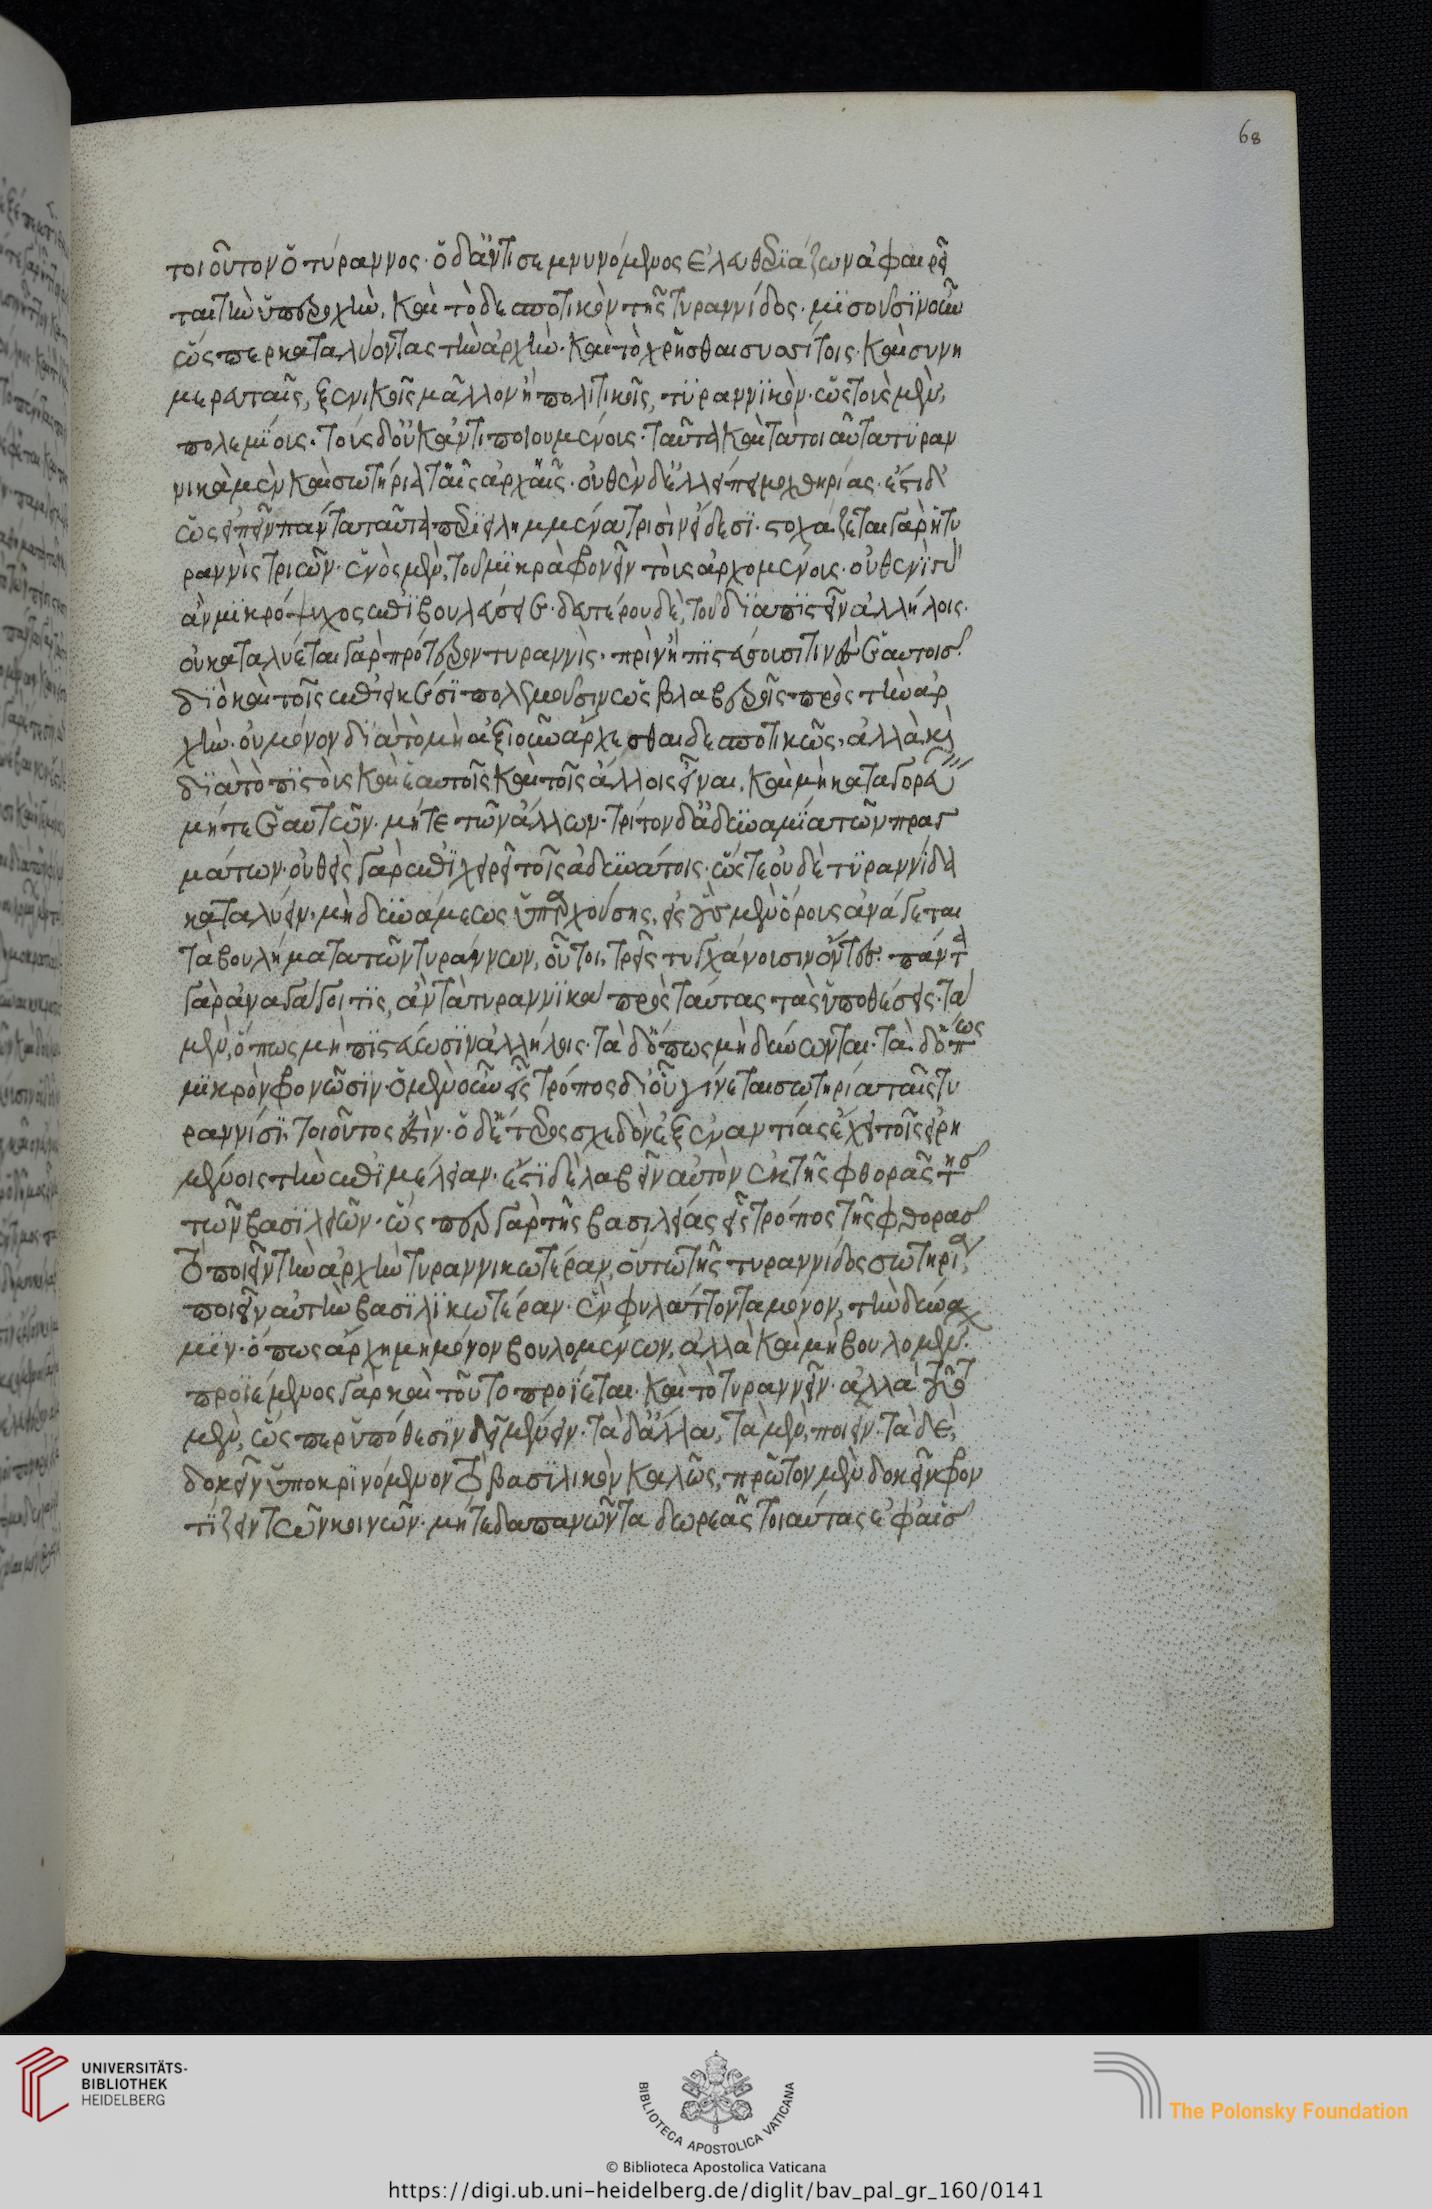 68
τοιοῦτον ὁ τύραννος· ὁ δ' ἀντισεμνυνόμενος ἐλευθεριάζων ἀφαιρεῖ
ται τὴν ὑπεροχὴν, καὶ τὸ δεσποτικὸν τῆς τυραννίδος· μισοῦσιν οὖν
ὥσπερ καταλύοντας τὴν ἀρχὴν· καὶ τὸ χρῆσθαι συσσίτοις· καὶ συνη
μερευταῖς, ξενικοῖς μᾶλλον ἢ πολιτικοῖς, τυραννικὸν· ὡς τοὺς μὲν,
πολεμίους· τοὺς δ' οὐκ ἀντιποιουμένους· ταῦτα καὶ τὰ τοιαῦτα τυραν
νικὰ μὲν καὶ σωτήρια ταῖς ἀρχαῖς· οὐθὲν δ' ἐλλείπει μοχθηρίας· ἔστι δ'
ὡς εἰπεῖν πάντα ταῦτα περιειλημμένα τρισὶν εἴδεσι· στοχάζεται γὰρ ἡ τυ
ραννὶς τριῶν· ἑνὸς μὲν, τοῦ μικρὰ φρονεῖν τοὺς ἀρχομένους· οὐθενὶ γὰρ
ἂν μικρόψυχος ἐπιβουλεύσειε· δευτέρου δὲ, τοῦ διαπιστεῖν ἀλλήλοις·
οὐ καταλύεται γὰρ πρότερον τυραννὶς· πρὶν ἢ πιστεύσουσί τινες ἑαυτοῖς·
διὸ καὶ τοῖς ἐπιεικέσι πολεμοῦσιν ὡς βλαβεροῖς πρὸς τὴν ἀρ
χὴν· οὐ μόνον διὰ τὸ μὴ ἀξιοῦν ἄρχεσθαι δεσποτικῶς, ἀλλὰ καὶ
διὰ τὸ πιστοὺς καὶ ἑαυτοῖς καὶ τοῖς ἄλλοις εἶναι, καὶ μὴ καταγορεύειν
μήτε ἑαυτῶν· μήτε τῶν ἄλλων· τρίτον δ' ἀδυναμία τῶν πραγ
μάτων· οὐθεὶς γὰρ ἐπιχειρεῖ τοῖς ἀδυνάτοις· ὥστε οὐδὲ τυραννίδα
καταλύειν, μὴ δυνάμεως ὑπαρχούσης, εἰς οὓς μὲν ὅρους ἀνάγεται
τὰ βουλήματα τῶν τυράννων, οὗτοι τρεῖς τυγχάνουσιν ὄντες· πάντα
γὰρ ἀναγάγοι τις, ἂν τὰ τυραννικὰ πρὸς ταύτας τὰς ὑποθέσεις· τὰ
μὲν, ὅπως μὴ πιστεύωσιν ἀλλήλοις· τὰ δ' ὅπως μὴ δύνωνται· τὰ δ' ὅπως
μικρὸν φρονῶσιν· ὁ μὲν οὖν εἷς τρόπος δι' οὗ γίνεται σωτηρία ταῖς τυ
ραννίσι, τοιοῦτος ἐστὶν· ὁ δ' ἕτερος σχεδὸν ἐξ ἐναντίας ἔχει τοῖς εἰρη
μένοις τὴν ἐπιμέλειαν· ἔστι δὲ λαβεῖν αὐτὸν ἐκ τῆς φθορᾶς τῆς
τῶν βασιλειῶν· ὥσπερ γὰρ τῆς βασιλείας εἷς τρόπος τῆς φθορᾶς
τὸ ποιεῖν τὴν ἀρχὴν τυραννικωτέραν, οὕτω τῆς τυραννίδος σωτηρία,
ποιεῖν αὐτὴν βασιλικωτέραν· ἓν φυλάττοντα μόνον, τὴν δύνα
μιν· ὅπως ἄρχῃ μὴ μόνον βουλομένων, ἀλλὰ καὶ μὴ βουλομένων·
προϊέμενος γὰρ καὶ τοῦτο προΐεται, καὶ τὸ τυραννεῖν· ἀλλὰ τοῦτο
μὲν, ὥσπερ ὑπόθεσιν δεῖ μένειν· τὰ δ' ἄλλα, τὰ μὲν, ποιεῖν· τὰ δὲ,
δοκεῖν ὑποκρινόμενον τὸ βασιλικὸν καλῶς, πρῶτον μὲν δοκεῖν φρον
τίζειν τῶν κοινῶν· μήτε δαπανῶντα δωρεὰς τοιαύτας ἐφ' αἷς
UNIVERSITÄTS-
BIBLIOTHEK
HEIDELBERG
BIBLIOTECA APOSTOLICA VATICANA
© Biblioteca Apostolica Vaticana
The Polonsky Foundation
https://digi.ub.uni-heidelberg.de/diglit/bav_pal_gr_160/0141